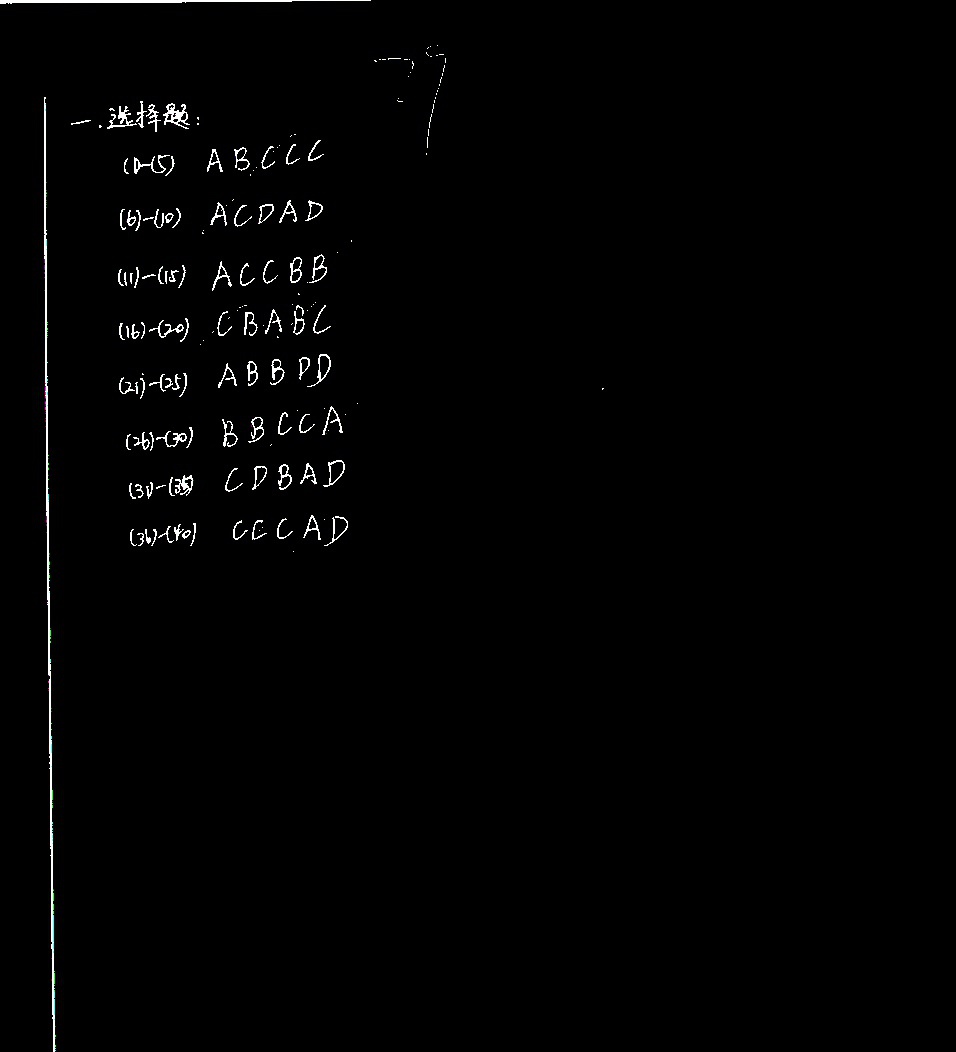 一.选择题:
(1)-(5) ABCCC
(6)-(10) ACDAD
(11)-(15) ACCBB
(16)-(20) CBABC
(21)-(25) ABBDD
(26)-(30) BBCCA
(31)-(35) CDBAD
(36)-(40) CCCAD